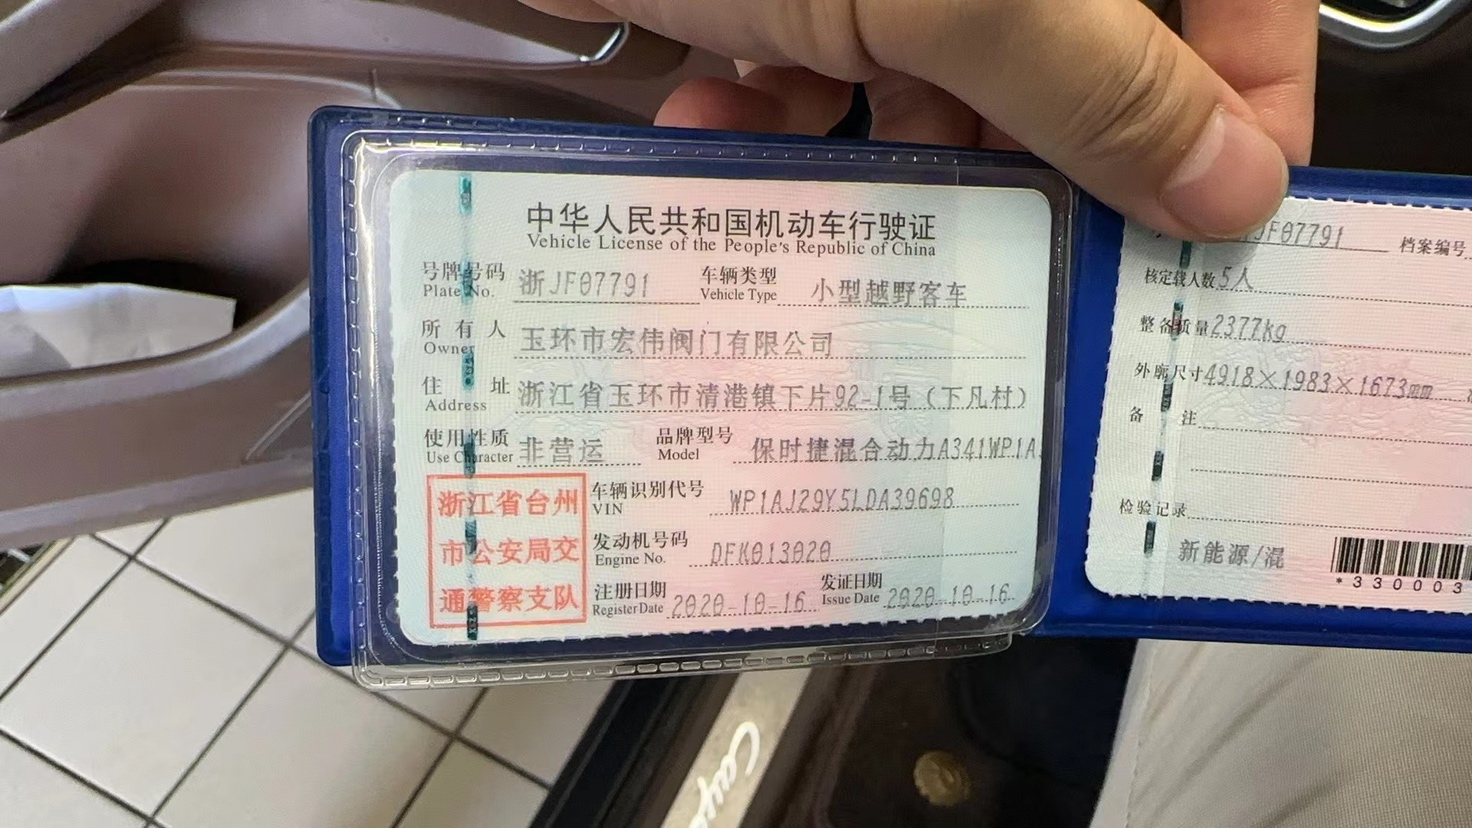 中华人民共和国机动车行驶证
Vehicle License of the People's Republic of China
号牌号码 浙JF07791 车辆类型 小型越野客车
Plate No. Vehicle Type
所有人 玉环市宏伟阀门有限公司
Owner
住址 浙江省玉环市清港镇下片92-1号（下凡村）
Address
使用性质 非营运 品牌型号 保时捷混合动力A341WP1A
Use Character Model
浙江省台州
市公安局交
通警察支队
车辆识别代号 WP1AJ29Y5LDA39698
VIN
发动机号码 DFK013020
Engine No.
注册日期 2020-10-16 发证日期 2020-10-16
Register Date Issue Date
JF07791 档案编号
核定载人数 5人
整备质量 2377kg
外廓尺寸 4918×1983×1673mm
备注
检验记录
新能源/混
*330003